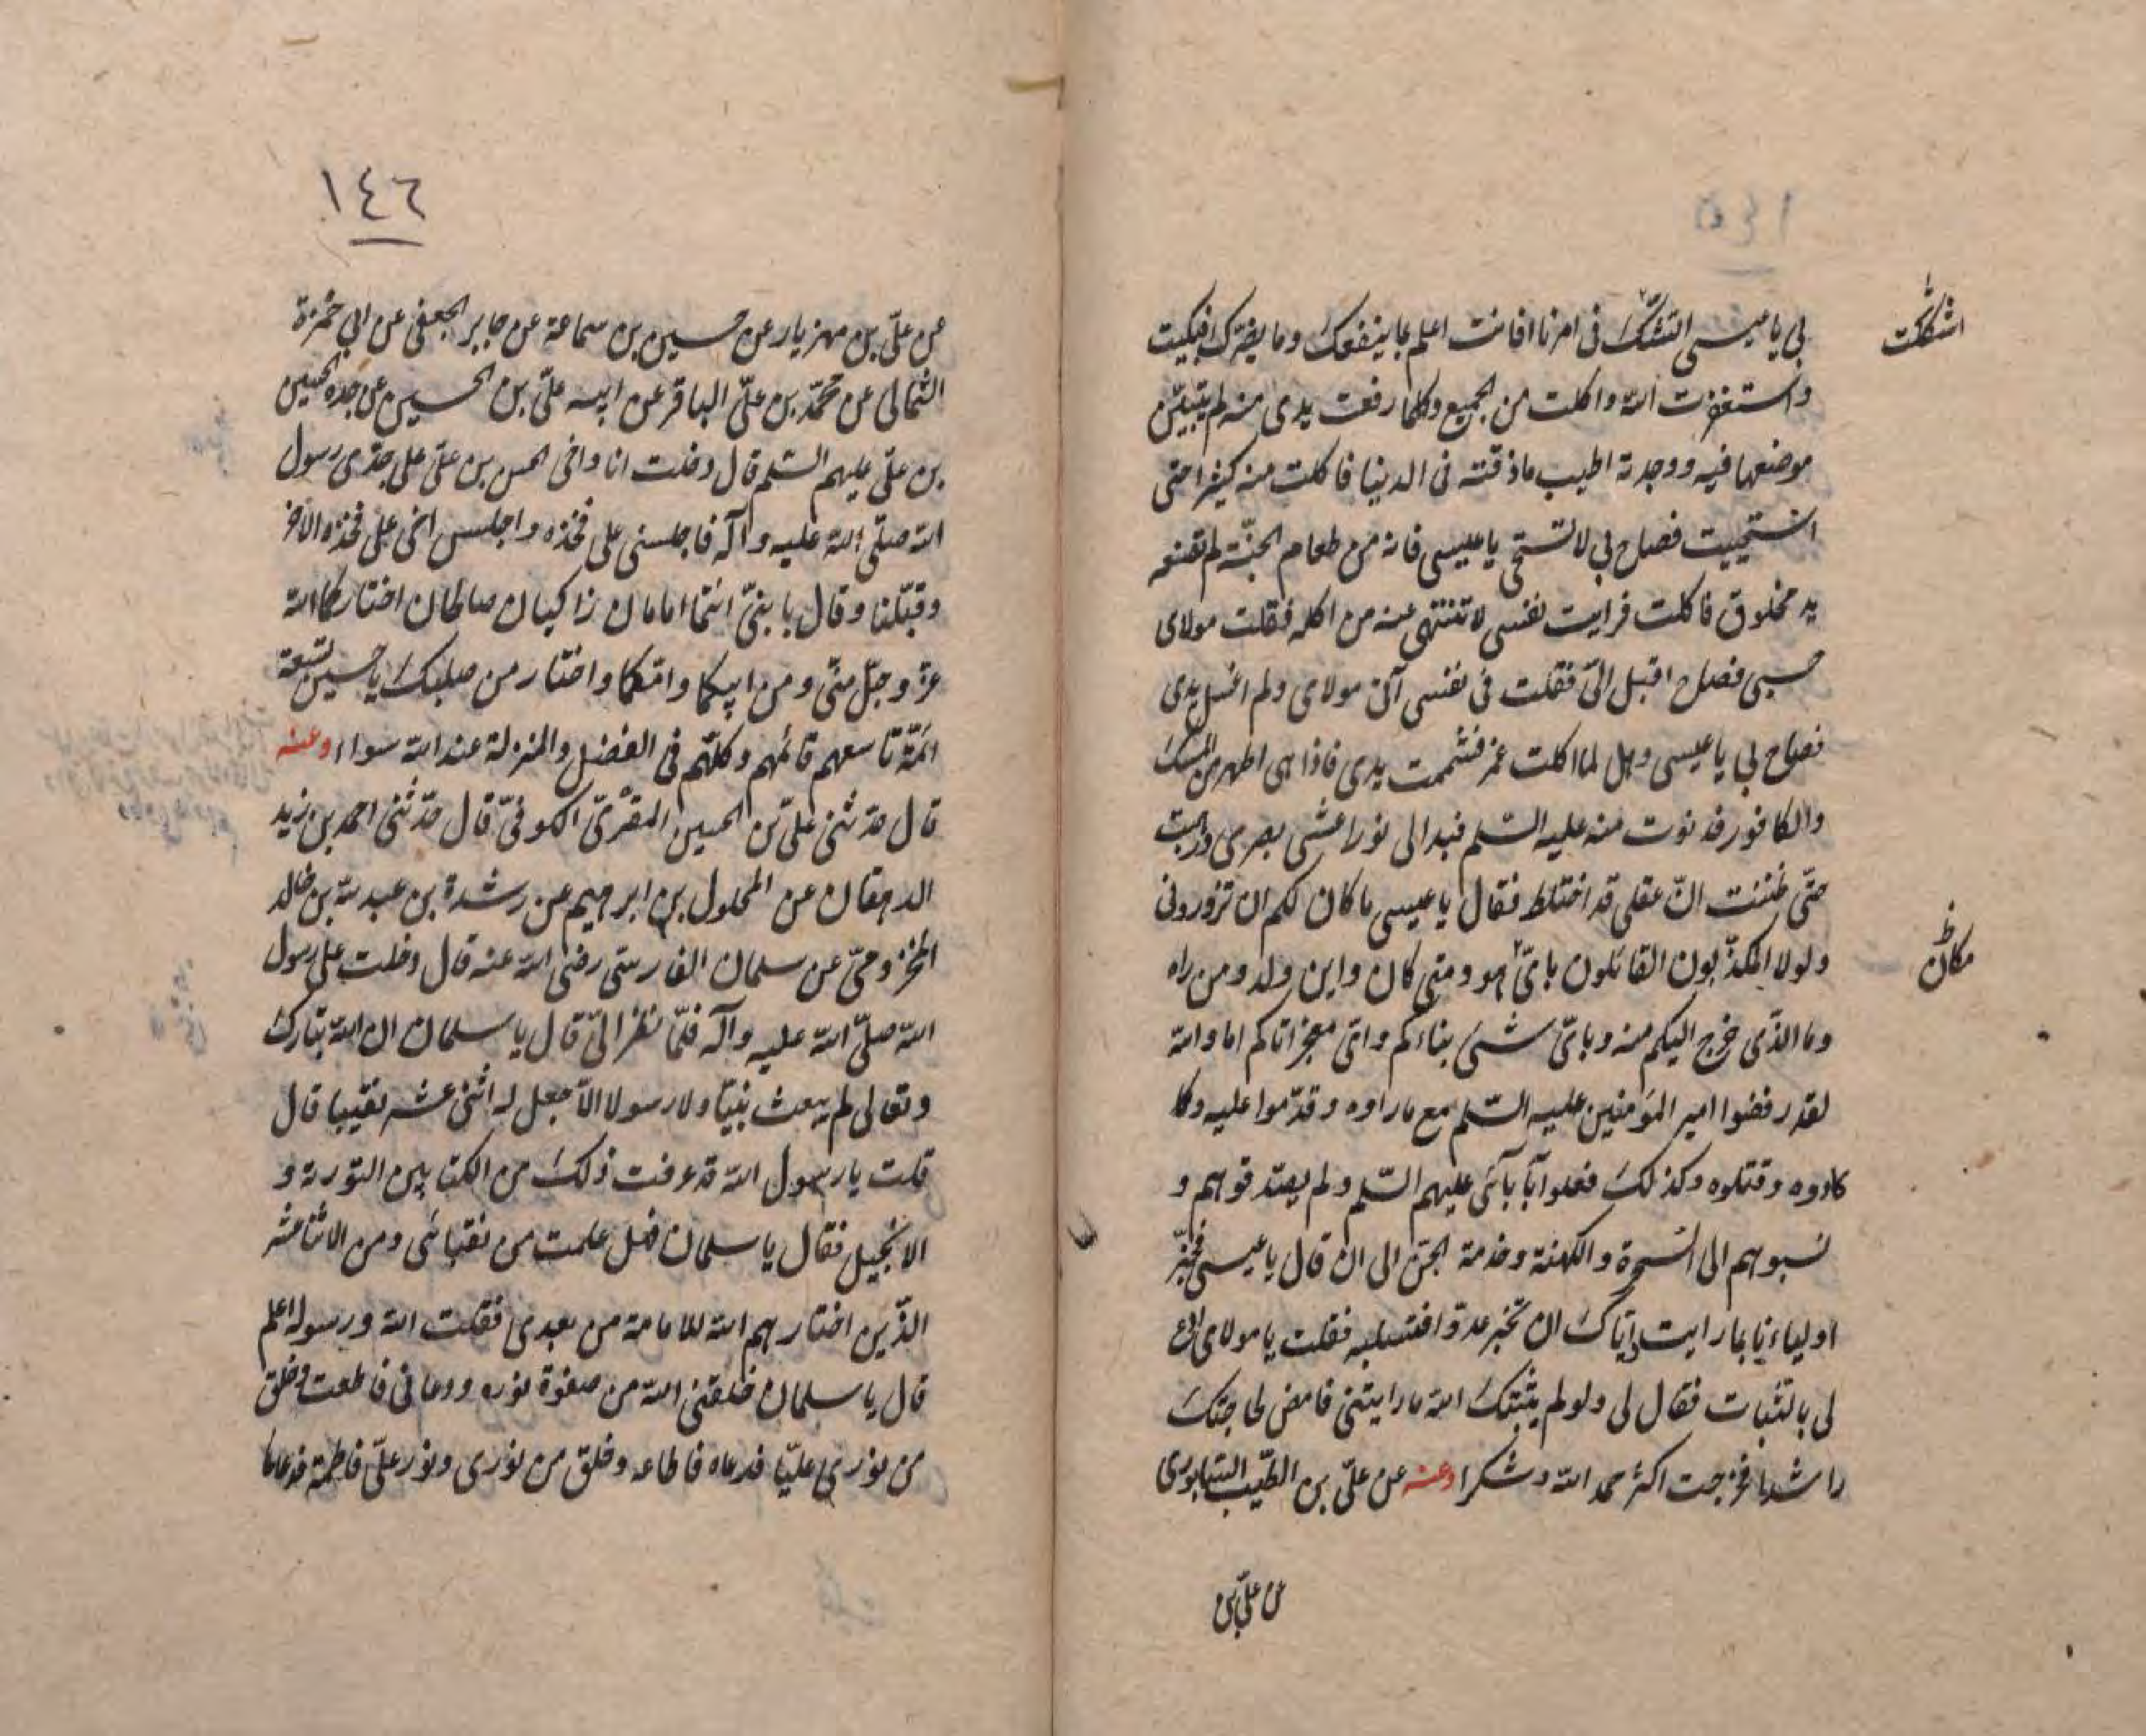 ١٤٥
لى يا عيسى اتشكّ فى امرنا افانت اعلم بما ينفعك وما يضرك فبكيت
اشككت
واستغفرت الله واكلت من الجميع وكلما رفعت يدى منه لم يتبيّن
موضعها فيه ووجدته اطيب ماذقته فى الدنيا فاكلت منه كثيرا حتى
استحييت فصاح بى لا تستحى يا عيسى فانه من طعام الجنّة لم تصنعه
يد مخلوق فاكلت فرايت نفسى لا تنتهى عنه من اكله فقلت مولاى
حسبى فصاح اقبل الىّ فقلت فى نفسى آتى مولاى ولم اغسل يدى
فصاح بى يا عيسى وهل لما اكلت غمر فشممت يدى فاذا هى اطهر من المسك
والكافور فدنوت منه عليه السّلم فبدا لى نور اعشى بصرى ورهبت
حتّى ظننت انّ عقلى قد اختلط فقال يا عيسى ما كان لكم ان تزورونى
ولولا المكذّبون القائلون باىّ هو ومتى كان واين ولد ومن راه
مكان ظ
وما الذّى خرج اليكم منه وباىّ شىء بناءكم واىّ معجز اتاكم اما والله
لقد رفضوا امير المؤمنين عليه السّلم مع ماراوه وقدّموا عليه وكا
كادوه وقتلوه وكذلك فعلوا بآبآئى عليهم السّلم ولم يصدّقوهم و
نسبوهم الى السّحرة والكهنة وخدمة الجن الى ان قال يا عيسى فخبّر
اولياءنا بما رايت وايّاك ان تخبر عدوا فتسلبه فقلت يا مولاى ادع
لى بالثبات فقال لى ولو لم يثبّتك الله ما رايتنى فامض لحاجتك
راشدا فخرجت اكثر حمد الله وشكرا وعنه عن علىّ بن الطيّب السّابورى
عن علىّ بن
١٤٦
عن علىّ بن مهزيار عن حسين بن سماعة عن جابر الجعفى عن ابى حمزة
الثمالى عن محمّد بن علىّ الباقر عن ابيه علىّ بن الحسين عن جده الحسين
بن علىّ عليهم السّلم قال دخلت انا واخى الحسن بن علىّ على جدّى رسول
الله صلّى الله عليه وآله فاجلسنى على فخذه واجلس اخى على فخذه الاخر
وقبّلنا وقال يا بنىّ انتما امامان زاكيان صالحان اختاركما الله
عزّ وجلّ منّى ومن ابيكما وامّكما واختار من صلبك يا حسين تسعة
ائمّة تاسعهم قائمهم وكلّهم فى الفضل والمنزلة عند الله سواء وعنه
قال حدّثنى علىّ بن الحسين المقرّى الكوفىّ قال حدّثنى احمد بن زيد
الدهقان عن المحلول بن ابرهيم عن رشدة بن عبد الله بن خالد
المخزومىّ عن سلمان الفارسىّ رضى الله عنه قال دخلت على رسول
الله صلّى الله عليه وآله فلمّا نظر الىّ قال يا سلمان ان الله تبارك
وتعالى لم يبعث نبيّا ولا رسولا الّا جعل له اثنى عشر نقيبا قال
قلت يا رسول الله قد عرفت ذلك من الكتابين التورية و
الانجيل فقال يا سلمان فهل علمت من نقبائى ومن الاثنا عشر
الذّين اختارهم الله للامامة من بعدى فقلت الله ورسوله اعلم
قال يا سلمان خلقنى الله من صفوة نوره ودعانى فاطعت وخلق
من نورى عليّا فدعاه فاطاعه وخلق من نورى ونور علىّ فاطمة فدعاها